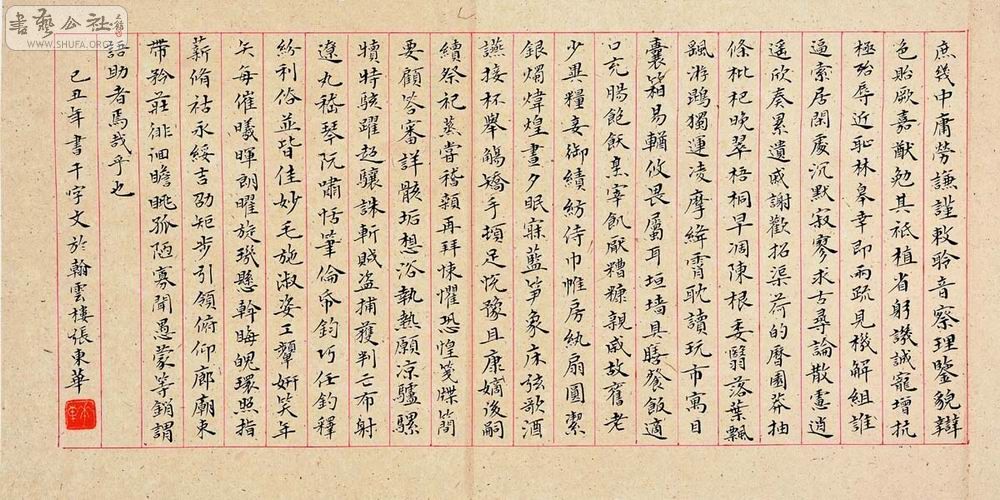 書藝公社
WWW.SHUFA.ORG
庶幾中庸勞謙謹敕聆音察理鑒貌辯
色貽厥嘉猷勉其祗植省躬譏誡寵增抗
極殆辱近恥林皋幸即兩疏見機解組誰
逼索居閑處沉默寂寥求古尋論散慮逍
遙欣奏累遣慼謝歡招渠荷的歷園莽抽
條枇杷晚翠梧桐早凋陳根委翳落葉飄
颻游鵾獨運凌摩絳霄耽讀玩市寓目
囊箱易輶攸畏屬耳垣墻具膳餐飯適
口充腸飽飫烹宰飢厭糟糠親戚故舊老
少異糧妾御績紡侍巾帷房紈扇圓潔
銀燭煒煌晝夕眠寐藍笋象床弦歌酒
讌接杯舉觴矯手頓足悅豫且康嫡後嗣
續祭祀蒸嘗稽顙再拜悚懼恐惶箋牒簡
要顧答審詳骸垢想浴執熱願凉驢騾
犢特駭躍超驤誅斬賊盜捕獲判亡布射
遼丸嵇琴阮嘯恬筆倫帋鈞巧任釣釋
紛利俗並皆佳妙毛施淑姿工顰妍笑年
矢每催曦暉朗曜旋璣懸斡晦魄環照指
薪脩祜永綏吉劭矩步引領俯仰廊廟束
帶矜莊徘徊瞻眺孤陋寡聞愚蒙等誚謂
語助者焉哉乎也
己丑年書千字文於翰雲樓張東華